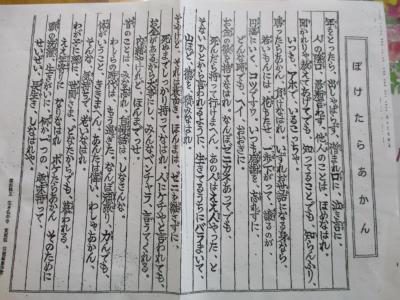 ぼけたらあかん
年をとったら 出しゃばらず 憎まれ口に 泣き言に
人のかげ口 愚痴言わず 他人のことは ほめなはれ
聞かれりゃ教えてあげてでも 知ってることでも 知らんふり
いつも アホで いることや
勝ったらあかん 負けなはれ いずれお世話になる身なら
若いもんには 花もたせ 一歩さがって ゆずるのが
円満にいく コツですわ いつも感謝を 忘れずに
どんな時でも へえ おおきに
お金の欲を 捨てなはれ なんぼゼニカネあってでも
死んだら持って行けまへん あの人は ええ人やった と
そないひとから言われるように 生きてるうちにバラまいて
山ほど 徳を 積みなはれ
そやけど それは表向き ほんまは ゼニを 離さずに
死ぬまでしっかり持ってなはれ 人にケチやと言われても
お金があるから大事にし みんなベンチャラ 言うてくれる
内証やけれど ほんまだっせ
昔のことは みな忘れ 自慢話は しなさんな
わしらの時代は もう過ぎた なんぼ頑張り 力んでも
体がいうこと ききまへん あんたは偉い わしゃあかん
そんな 気持ちで おりなはれ
わが子に 孫に 世間さま どなたからでも 慕われる
ええ年寄りに なりなはれ ボケたらあかん そのために
頭の洗濯 生きがいに 何か一つの 趣味持って
せいぜい 長生き しなはれや